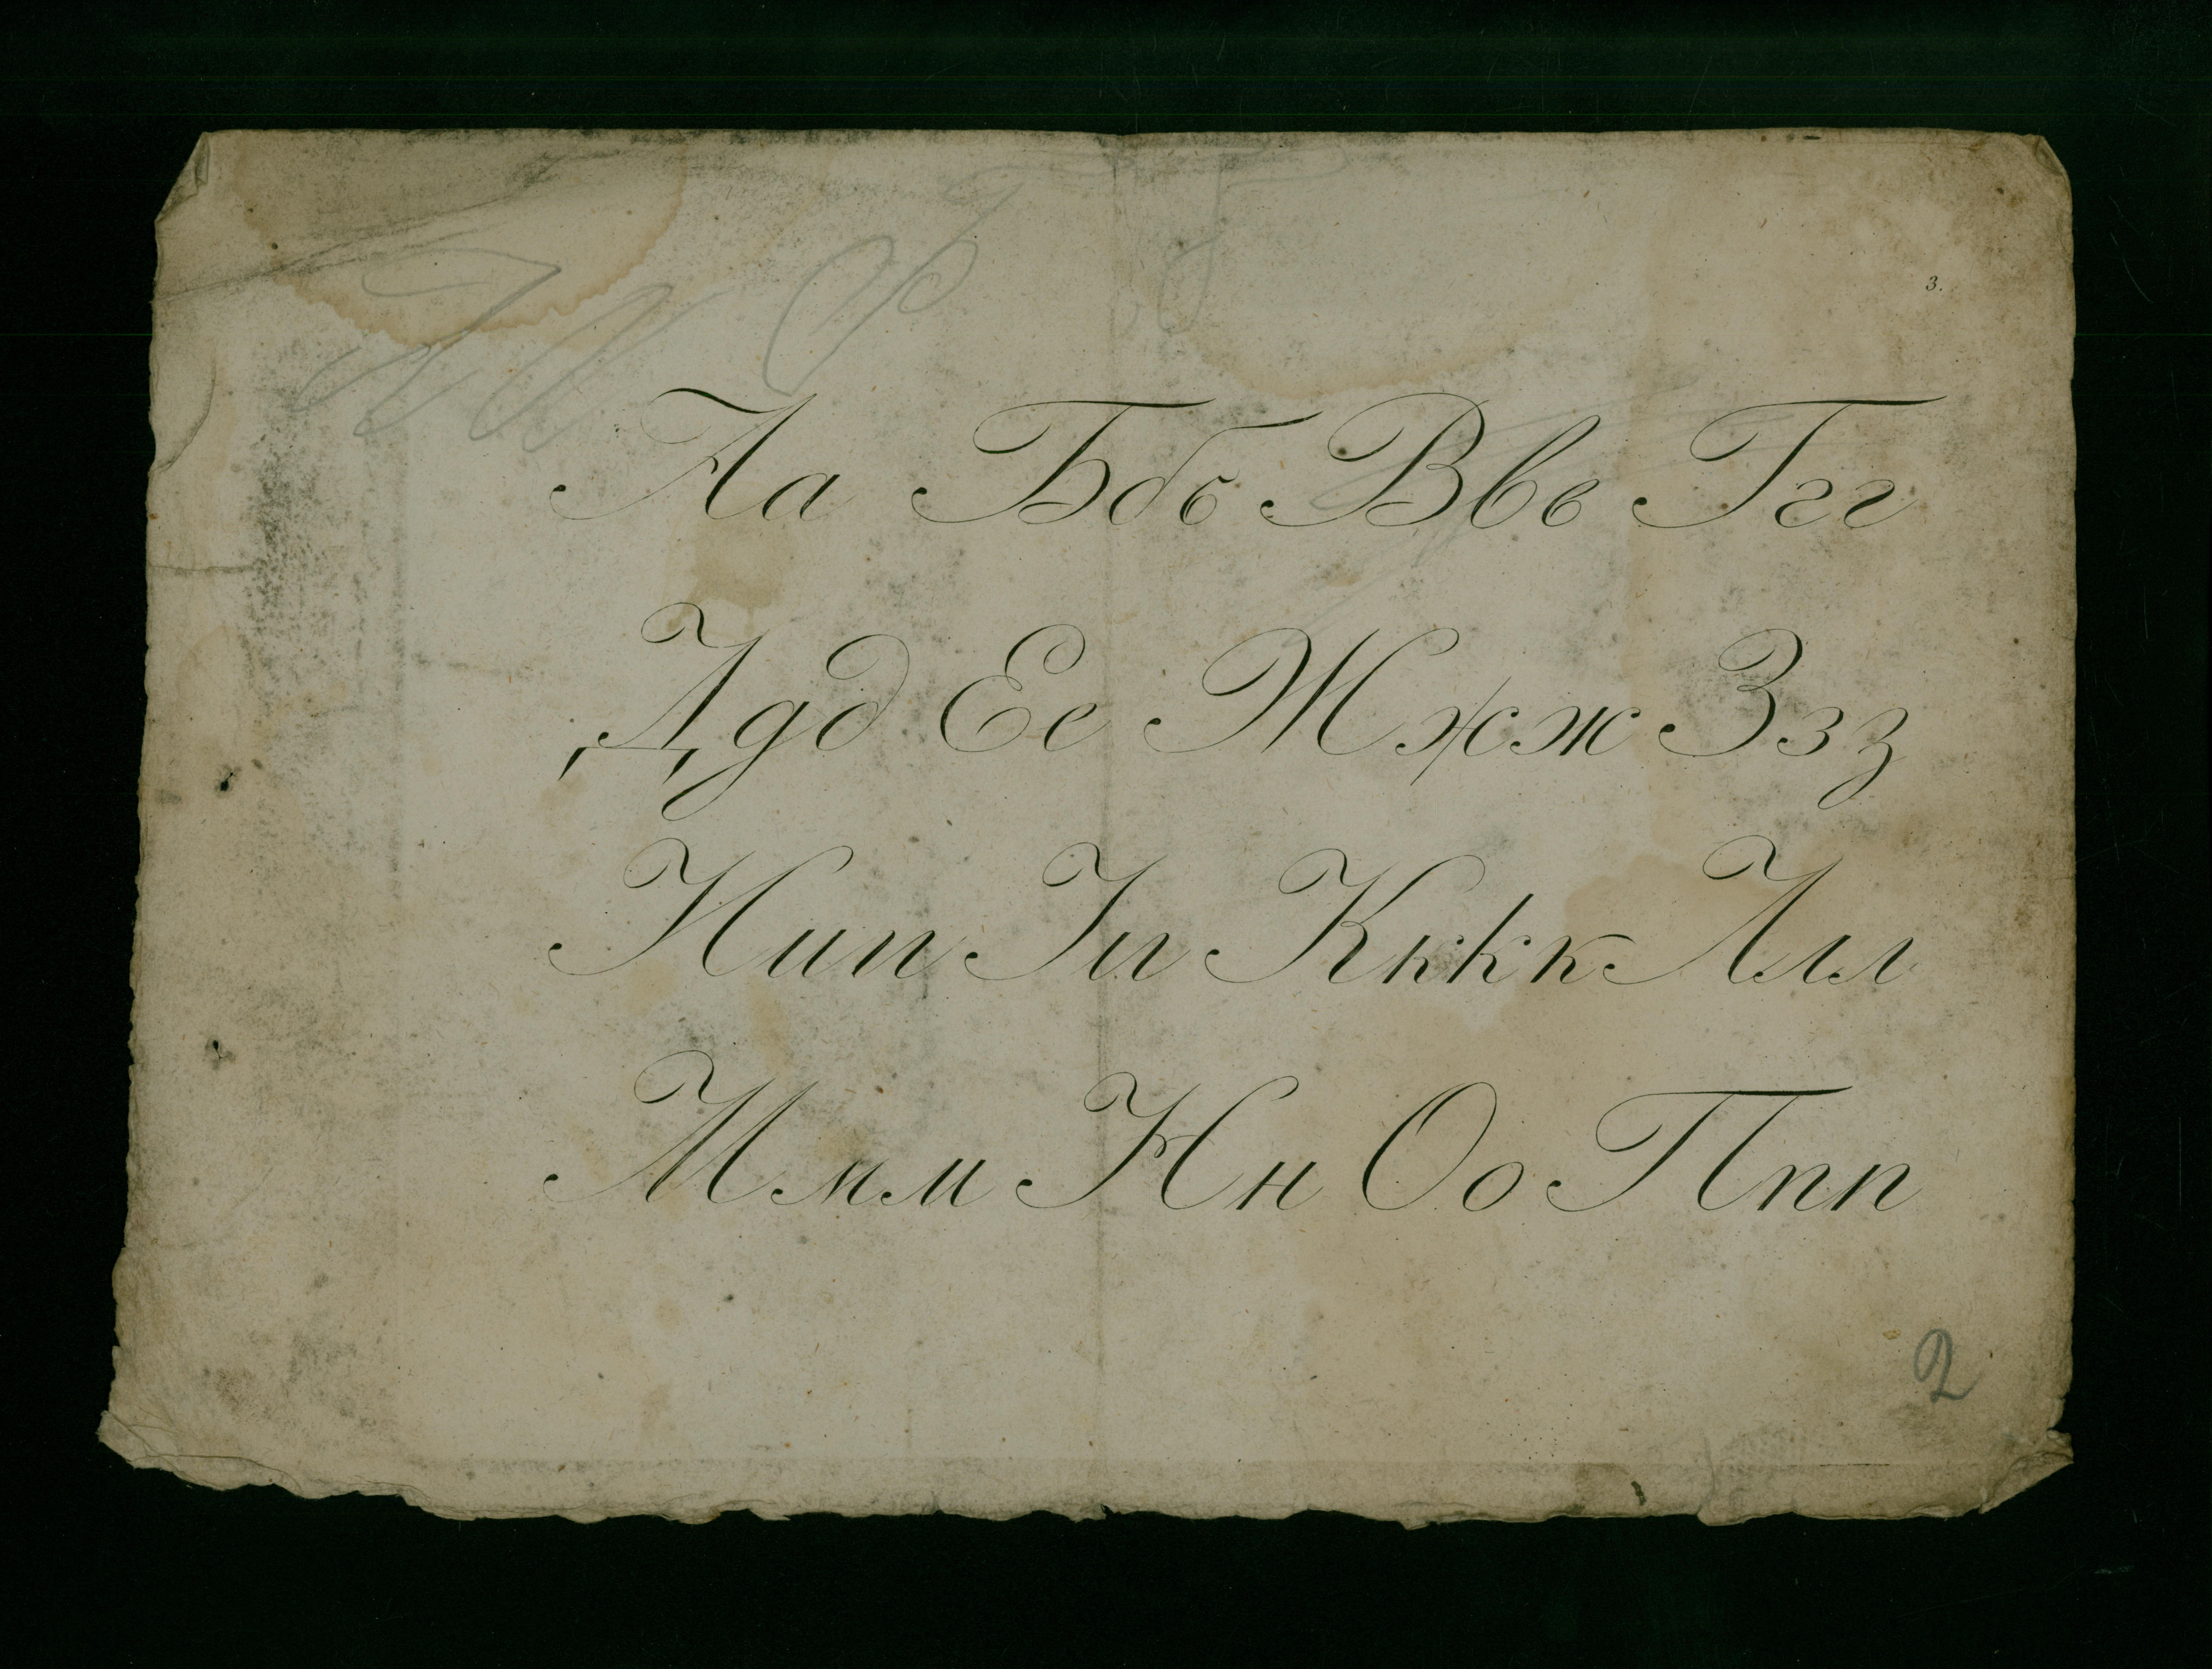 3.
Аа Ббб Ввв Ггг
Ддд Ее Жжж Ззз
Иии Іи Кккк Ллл
Ммм Нн Оо Ппп
2